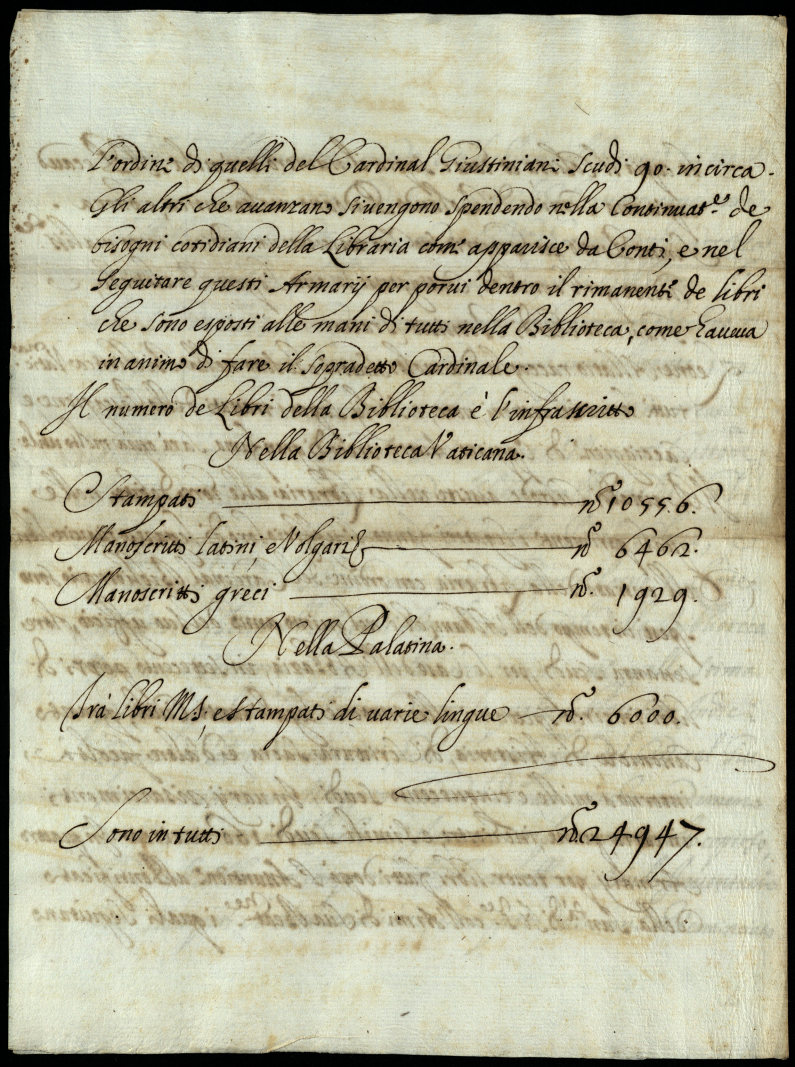 l'ordine di quelli del Cardinal Giustiniani scudi 90. in circa.
Gli altri che avanzano si vengono spendendo nella Continuat.ne de
bisogni cotidiani della Libraria come apparisce da Conti, e nel
seguitare questi Armarij per porvi dentro il rimanente de libri
che sono esposti alle mani di tutti nella Biblioteca, come haveva
in animo di fare il sogradetto Cardinale.
Il numero de Libri della Biblioteca è l'infrascritto
Nella Biblioteca Vaticana.
Stampati no. 10556.
Manoscritti latini, e Volgari no. 6462.
Manoscritti greci no. 1929.
Nella Palatina.
Trà libri Ms, e stampati di varie lingue no. 6000.
Sono in tutti no. 24947.